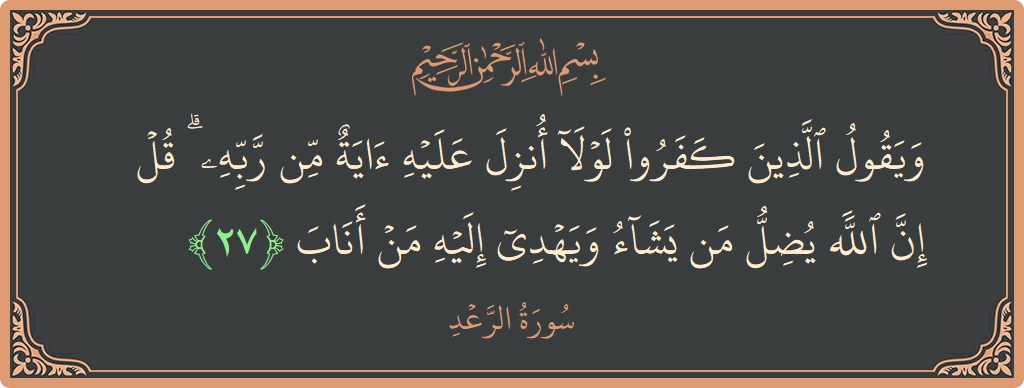 بِسْمِ اللهِ الرَّحْمٰنِ الرَّحِيْمِ
وَيَقُولُ ٱلَّذِينَ كَفَرُواْ لَوۡلَآ أُنزِلَ عَلَيۡهِ ءَايَةٌ مِّن رَّبِّهِۦۗ قُلۡ
إِنَّ ٱللَّهَ يُضِلُّ مَن يَشَآءُ وَيَهۡدِيٓ إِلَيۡهِ مَنۡ أَنَابَ ﴿٢٧﴾
سُورَةُ الرَّعۡدِ